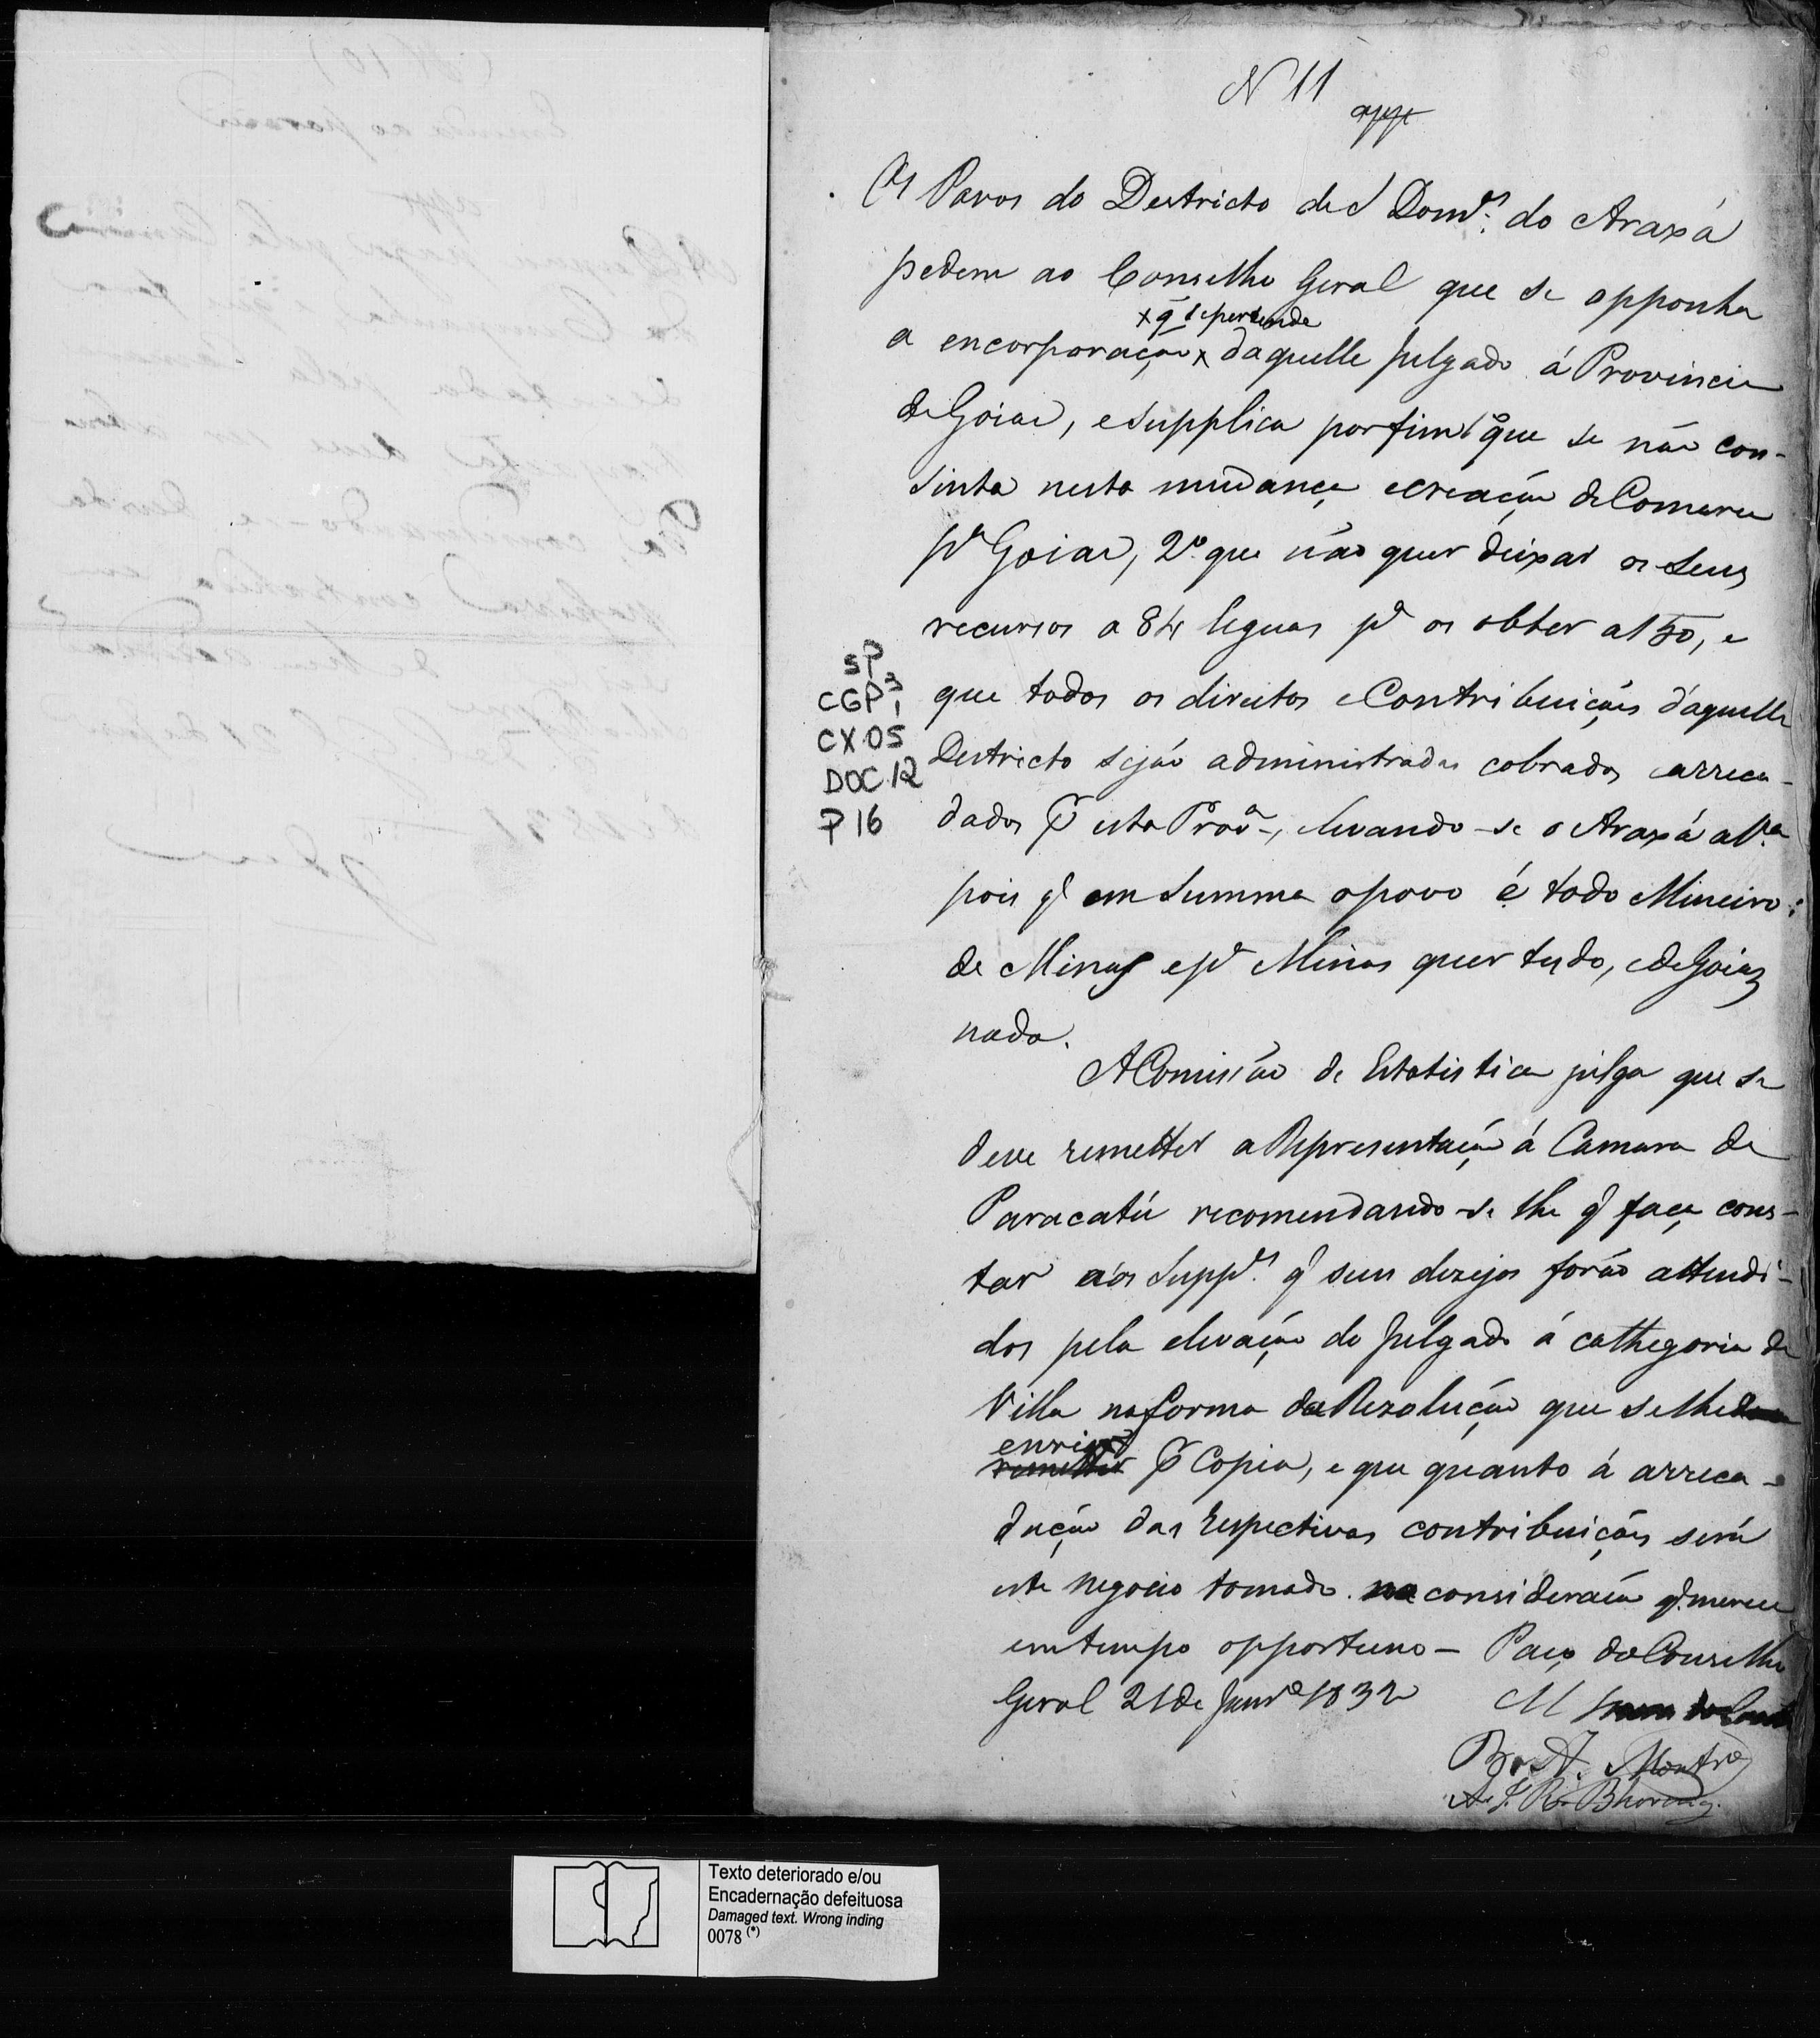 N 11
app
Os Povos do Destricto de S Dom.ºs do Araxá
pedem ao Conselho Geral que se opponha
x q̃ se pertende
a encorporação x daquelle Julgado á Provincia
de Goiaz, e supplica por fim 1º que se não con-
sinta nesta mudança e creação de Comarca
pª Goiaz, 2º que não quer deixar os seus
recursos a 84 leguas pª os obter a 150, e
que todos os direitos e Contribuições d'aquelle
Destricto sejão administrados cobrados e arreca-
dados p̃ esta Provª, elevando-se o Araxá a Vª
pois q̃ em summa o povo é todo Mineiro:
de Minas e pª Minas quer tudo, e de Goiaz
nada.
A Comissão de Estatistica julga que se
deve remetter a Representação á Camara de
Paracatú recomendando-se lhe q̃ faça cons-
tar aos Supp.es q̃ seus dezejos forão attendi-
dos pela elevação do Julgado á cathegoria de
Villa na forma da Rezolução que se lhe
enviará
remetter p̃ Copia, e que quanto á arreca-
dação das respectivas contribuições será
este negocio tomado na consideração q̃ merece
em tempo opportuno - Paço do Conselho
Geral 21 de Janrº 1832
M
B. A. Montrº
A. J. R. Bhering.
SP
CGP 1
CX.05
DOC.12
P 16
Texto deteriorado e/ou
Encadernação defeituosa
Damaged text. Wrong inding
0078 (*)